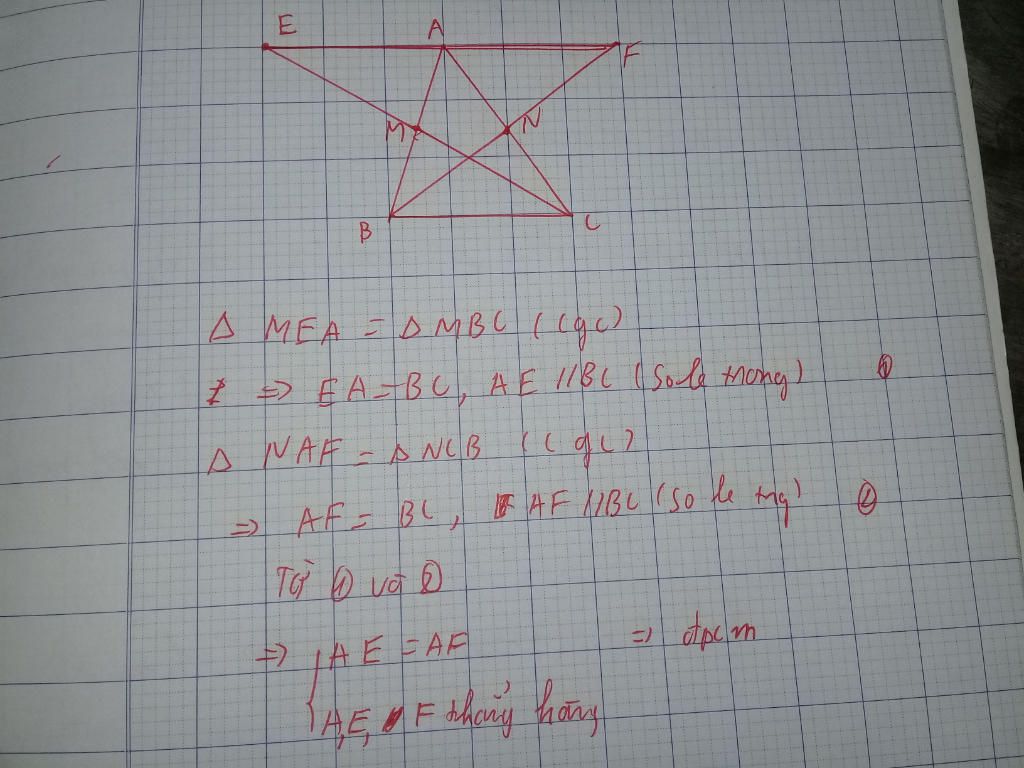 E A F
M N
B C
Δ MEA = Δ MBC (cgc)
=> EA = BC, AE // BC (so le trong) ①
Δ NAF = Δ NCB (cgc)
=> AF = BC, AF // BC (so le trg) ②
Từ ① và ②
=> { AE = AF => đpcm
A, E, F thẳng hàng